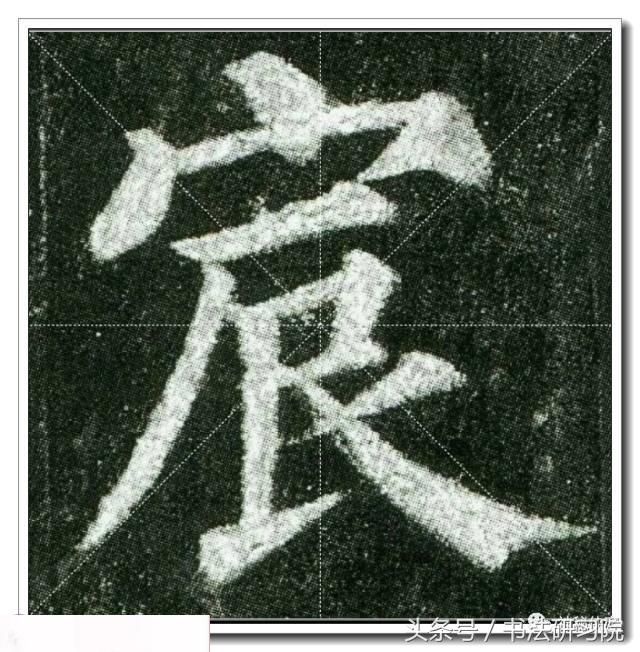 宸
头条号 / 书法研习院